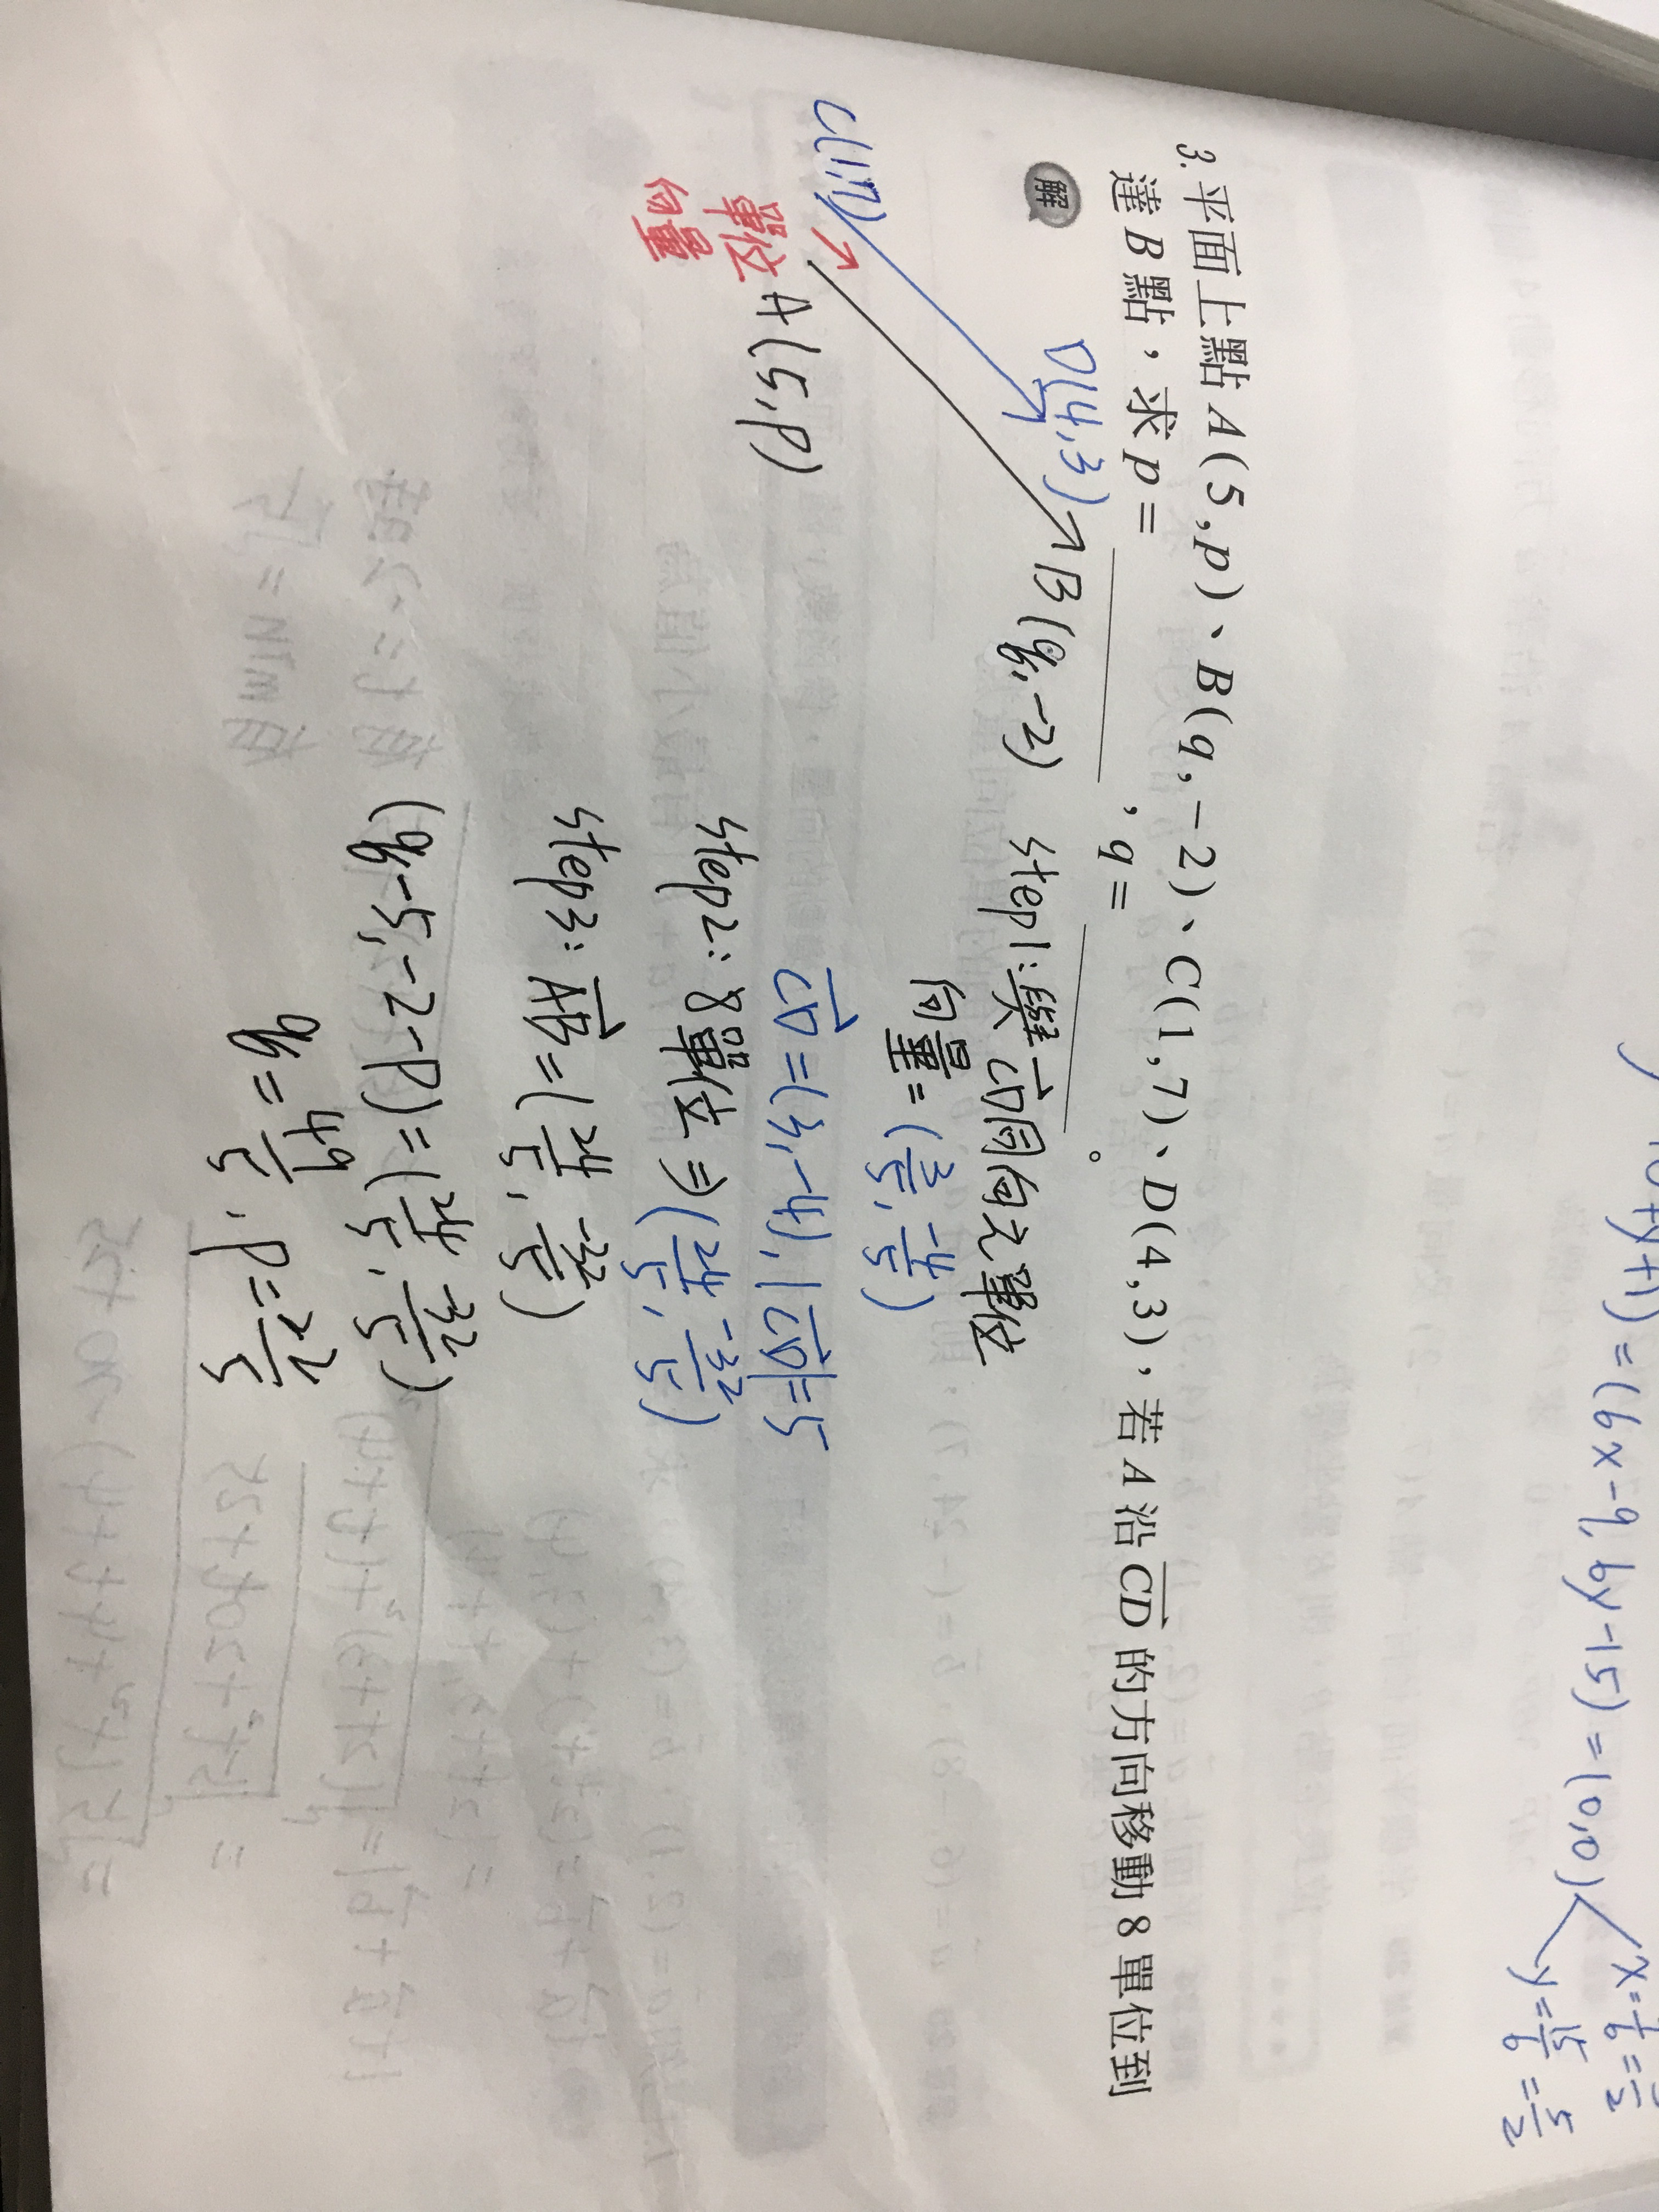 10+y+1) = (6x-9, 6y-15) = (0,0)
y = 15/6 = 5/2
3. 平面上點 A(5,p)、B(q,-2)、C(1,7)、D(4,3),若 A 沿 CD 的方向移動 8 單位到
達 B 點,求 p = ，q = 。
解
C(1,7)
D(4,3)
B(q,-2)
單位
向量
A(5,p)
step1: 與CD同向之單位
向量 = (3/5, -4/5)
CD = (3,-4), |CD| = 5
step2: 8單位 ⇒ (24/5, -32/5)
step3: AB = (24/5, -32/5)
(q-5, -2-p) = (24/5, -32/5)
q = 49/5, p = 22/5